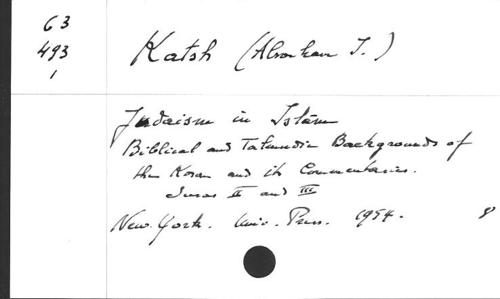 63
493
1
Katsh (Abraham I.)
Judaism in Islām
Biblical and Talmudic Backgrounds of
the Koran and its Commentaries.
Suras II and III
New-York. Univ. Press. 1954. 8